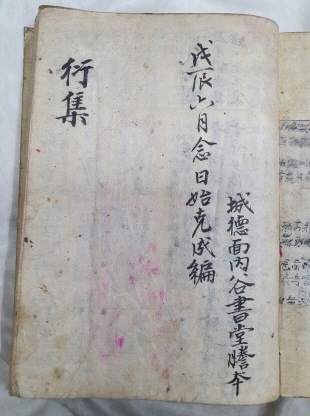 城德面內谷書堂謄本
戊辰六月念日始克成編
衍集